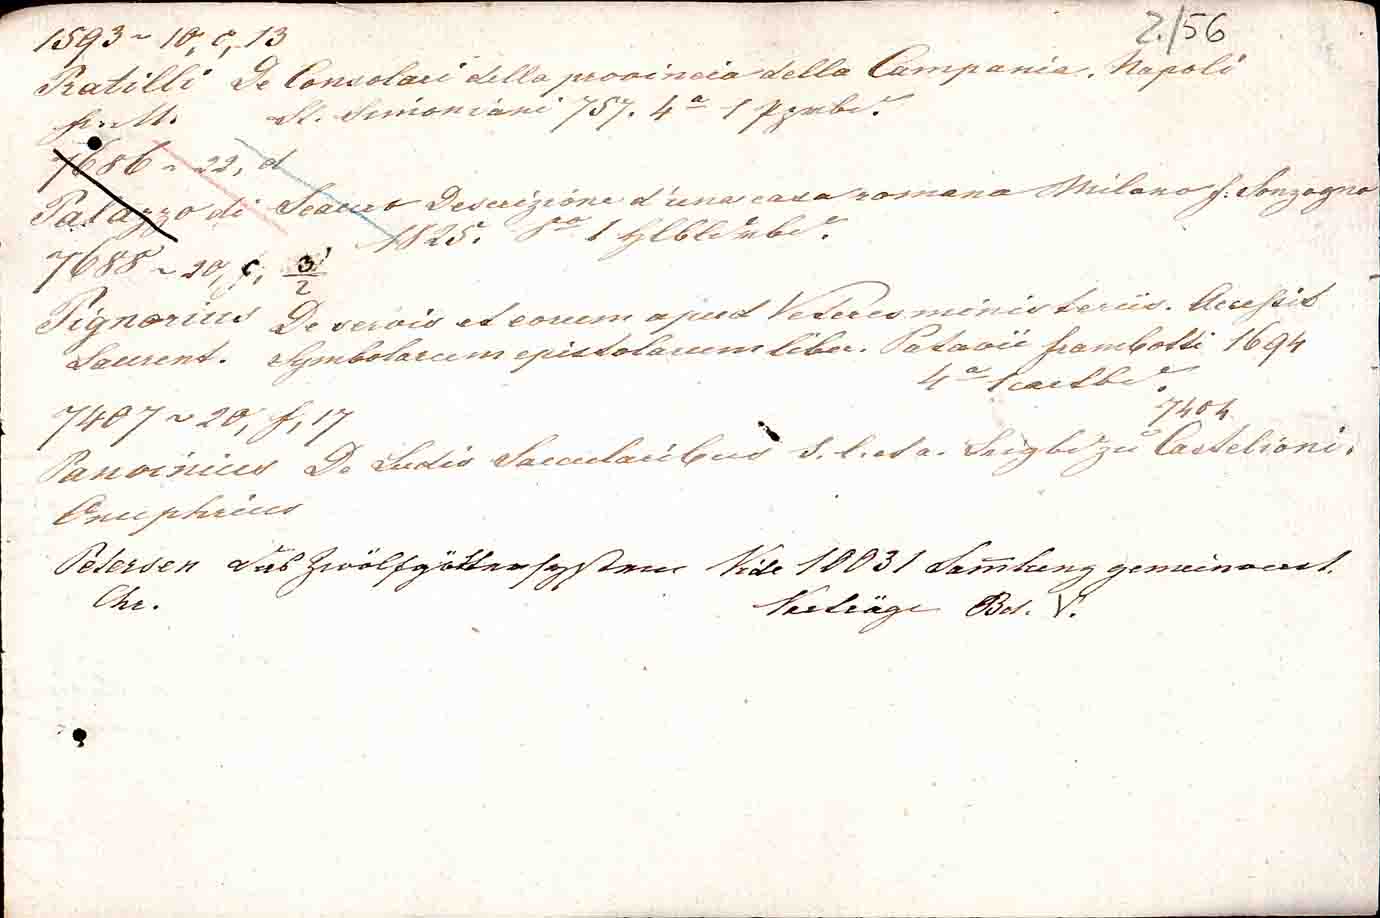 2./56
1593 ~ 10, c, 13
Pratilli De Consolari della provincia della Campania. Napoli
fr. M. St. Simoniani 757. 4º 1 Ppnbd.
7686 ~ 22, d
Palazzo di Scauro Descrizione d'una casa romana Milano f. Sonzogno
1825. 8º 1 Hlbldrbd.
7688 ~ 20, f, 3/2
Pignorius De servis et eorum apud Veteres ministeriis. Accessit
Laurent. Symbolarum epistolarum liber. Patavii frambotti 1694
4º 1 cartbd.
7407 ~ 20, f, 17
7404
Panvinius De Ludis Saecularibus s. l. et a. Beigbd zu Castelioni.
Onuphrius
Petersen Das Zwölfgöttersystem Vide 10031 Samlung gemeinverst.
Chr. Vorträge Bd. V.